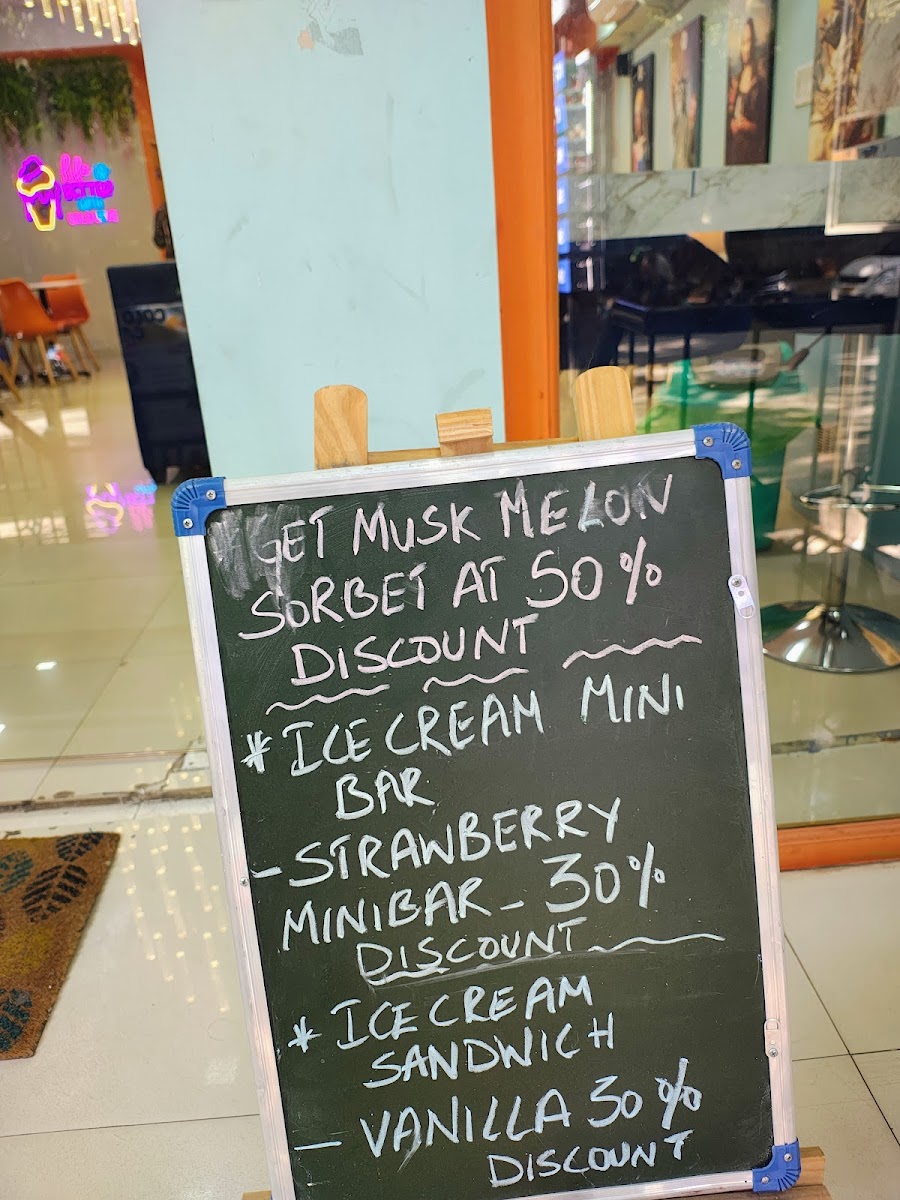 GET MUSK MELON
SORBET AT 50%
DISCOUNT
* ICE CREAM MINI
BAR
- STRAWBERRY
MINIBAR - 30%
DISCOUNT
* ICE CREAM
SANDWICH
- VANILLA 30%
DISCOUNT